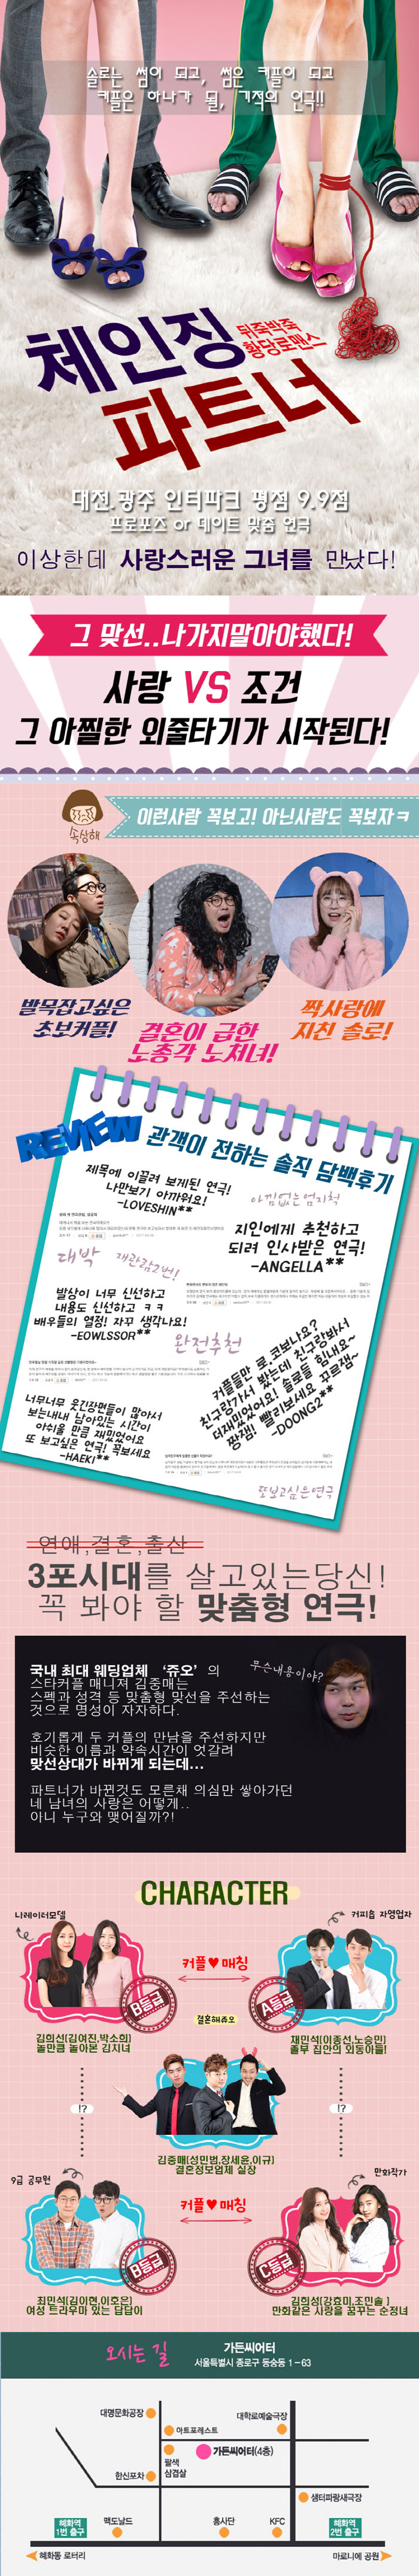 솔로는 썸이 되고, 썸은 커플이 되고
커플은 하나가 될, 기적의 연극!!
체인징
뒤죽박죽
황당로맨스
파트너
대전.광주 인터파크 평점 9.9점
프로포즈 or 데이트 맞춤 연극
이상한데 사랑스러운 그녀를 만났다!
그 맞선..나가지말아야했다!
사랑 VS 조건
그 아찔한 외줄타기가 시작된다!
속상해
이런사람 꼭보고! 아닌사람도 꼭보자ㅋ
발목잡고싶은
초보커플!
결혼이 급한
노총각 노처녀!
짝사랑에
지친 솔로!
REVIEW
관객이 전하는 솔직 담백후기
제목에 이끌려 보게된 연극!
나만보기 아까워요!
-LOVESHIN**
아낌없는 엄지척
지인에게 추천하고
되려 인사받은 연극!
-ANGELLA**
대박
재관람2번!
발상이 너무 신선하고
내용도 신선하고 ㅋㅋ
배우들의 열정! 자꾸 생각나요!
-EOWLSSOR**
완전추천
커플들만 로.코보나요?
친구랑가서 봤는데 친구랑봐서
더재밌었어요! 솔로들 힘내요~
짱잼! 빨리보세요 꾸르잼~
-DOONG2**
너무너무 웃긴장면들이 많아서
보는내내 남아있는 시간이
아쉬울 만큼 재밌었어요
또 보고싶은 연극! 꼭보세요
-HAEKI**
또보고싶은연극
연애,결혼,출산
3포시대를 살고있는당신!
꼭 봐야 할 맞춤형 연극!
무슨내용이야?
국내 최대 웨딩업체 ‘쥬오’의
스타커플 매니져 김중매는
스펙과 성격 등 맞춤형 맞선을 주선하는
것으로 명성이 자자하다.
호기롭게 두 커플의 만남을 주선하지만
비슷한 이름과 약속시간이 엇갈려
맞선상대가 바뀌게 되는데...
파트너가 바뀐것도 모른채 의심만 쌓아가던
네 남녀의 사랑은 어떻게..
아니 누구와 맺어질까?!
CHARACTER
나레이터모델
커피숍 자영업자
커플♥매칭
B등급
A등급
결혼해쥬오
김희선(김여진,박소희)
놀만큼 놀아본 김치녀
채민석(이종선,노승민)
졸부 집안의 외동아들!
!?
!?
김중매(성민범,장세윤,이규)
결혼정보업체 실장
9급 공무원
만화작가
커플♥매칭
B등급
C등급
최민석(김이현,이호은)
여성 트라우마 있는 답답이
김희성(강효미,조민솔)
만화같은 사랑을 꿈꾸는 순정녀
오시는 길
가든씨어터
서울특별시 종로구 동숭동 1-63
대명문화공장
대학로예술극장
아트포레스트
가든씨어터(4층)
팔색
삼겹살
한신포차
샘터파랑새극장
혜화역
1번 출구
맥도날드
흥사단
KFC
혜화역
2번 출구
혜화동 로터리
마로니에 공원